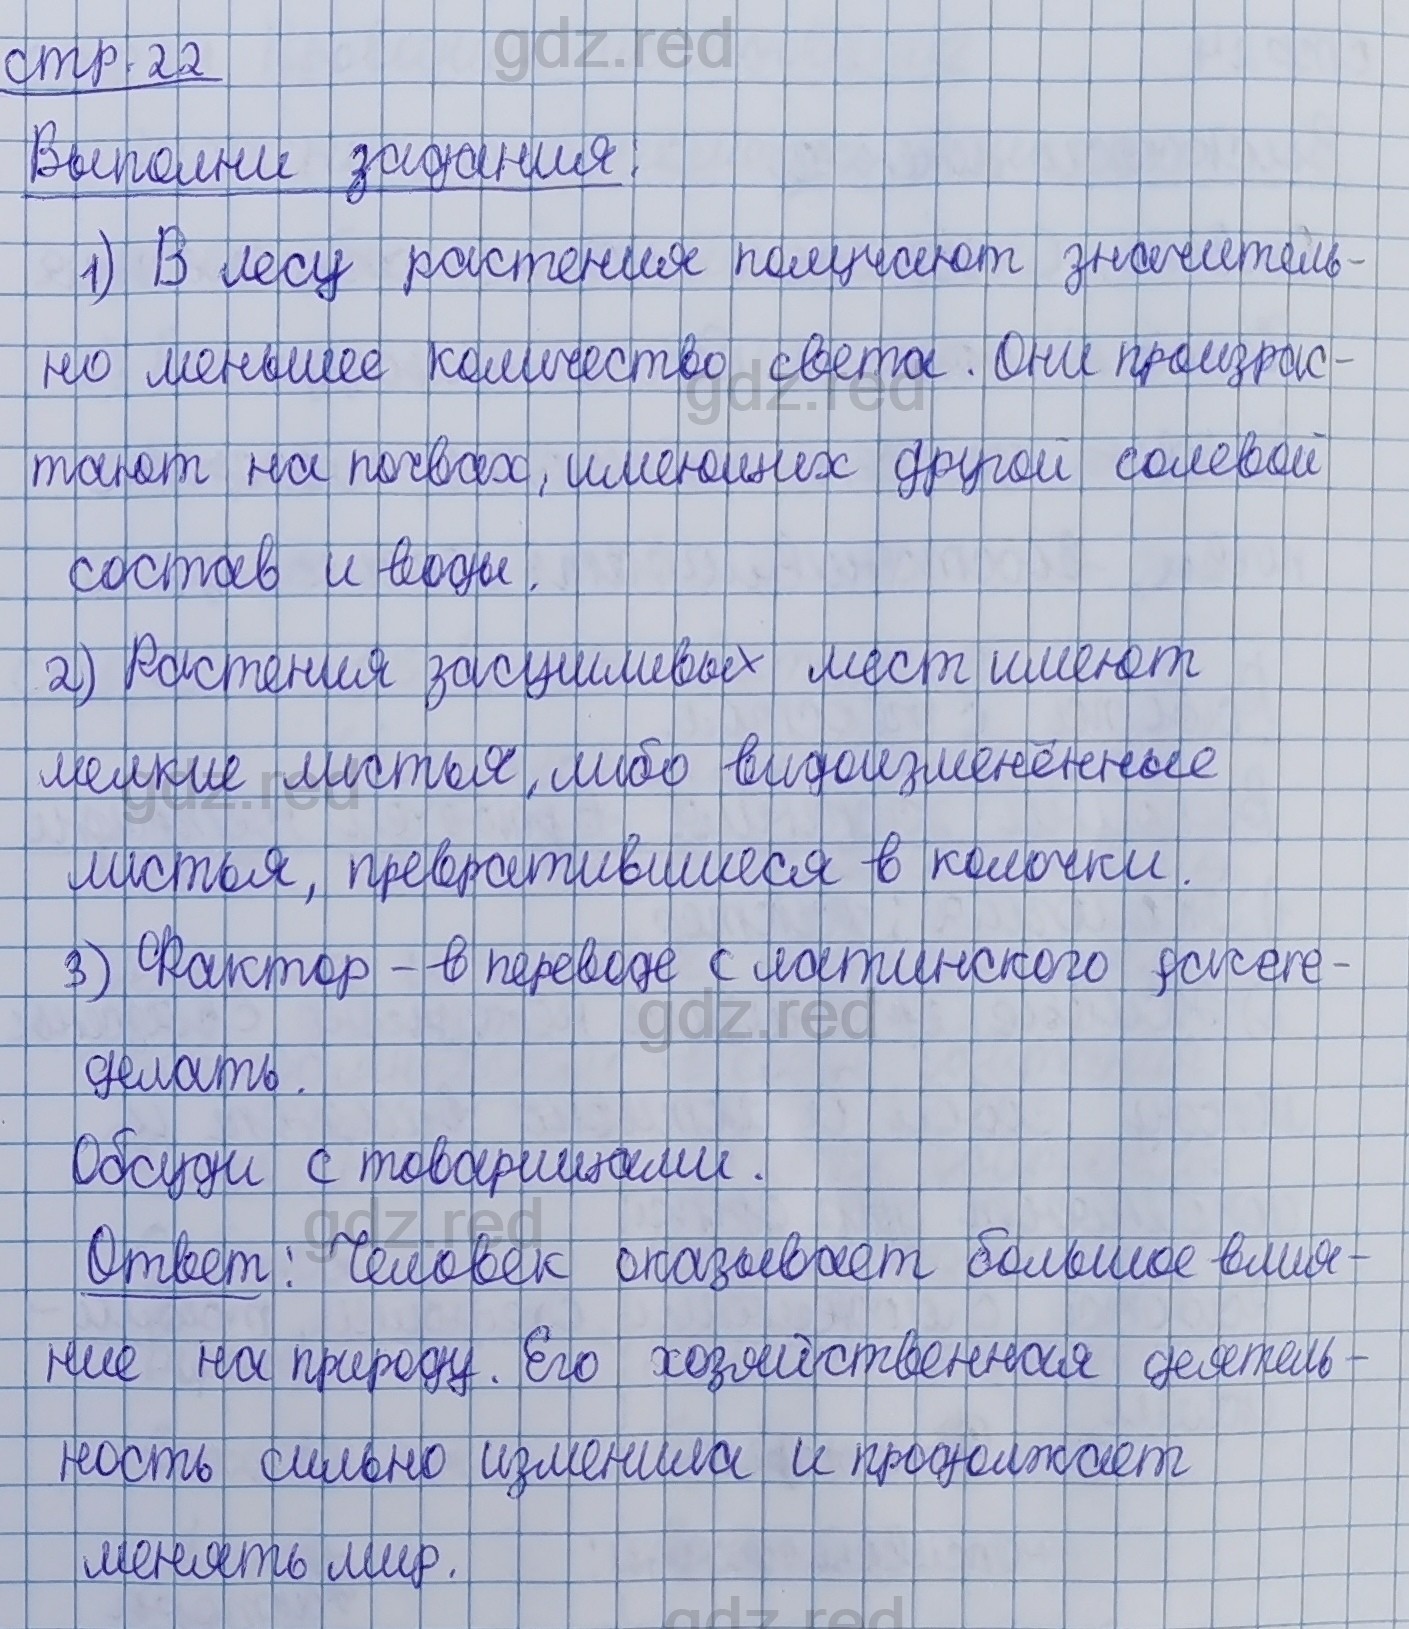 gdz.red
стр. 22
Выполни задания:
1) В лесу растения получают значитель-
но меньшее количество света. Они произрас-
gdz.red
тают на почвах, имеющих другой солевой
состав и воды.
2) Растения засушливых мест имеют
мелкие листья, либо видоизменённые
gdz.red
листья, превратившиеся в колючки.
3) Фактор - в переводе с латинского
gdz.red
делать.
Обсуди с товарищами.
gdz.red
Ответ: Человек оказывает большое влия-
ние на природу. Его хозяйственная деятель-
ность сильно изменила и продолжает
менять мир.
gdz.red